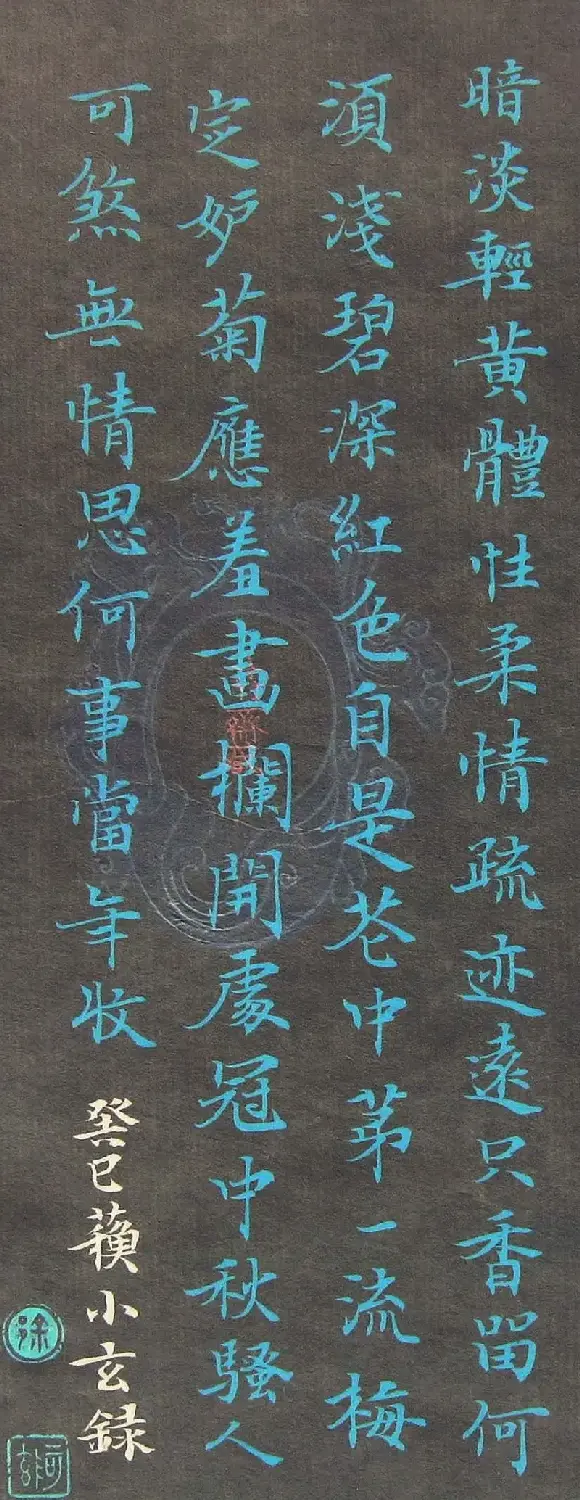 暗淡輕黄體性柔情疏迹遠只香留何
湏淺碧深紅色自是花中苐一流梅
定妒菊應羞畫欄開處冠中秋騷人
可煞無情思何事當年收
癸巳小玄録
徐